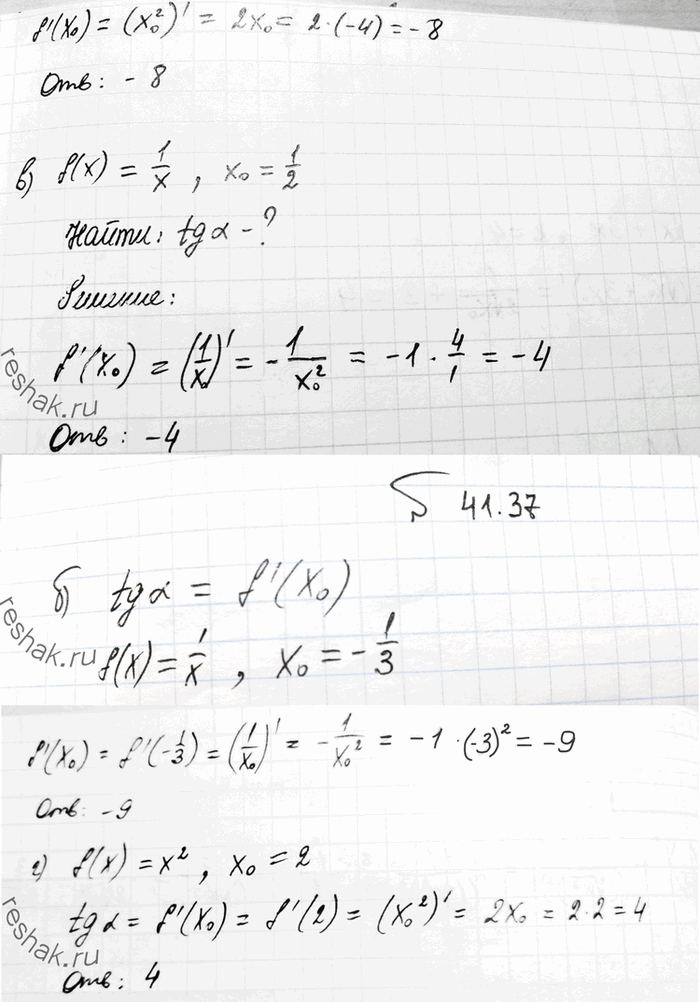 f'(x₀) = (x₀²)' = 2x₀ = 2·(-4) = -8
Отв: -8
в) f(x) = 1/x , x₀ = 1/2
Найти: tg α - ?
Решение:
f'(x₀) = (1/x₀)' = - 1/x₀² = -1 · 4/1 = -4
reshak.ru
Отв: -4
41.37
б) tg α = f'(x₀)
reshak.ru
f(x) = 1/x , x₀ = - 1/3
f'(x₀) = f'(-1/3) = (1/x₀)' = - 1/x₀² = -1 ·(-3)² = -9
Отв: -9
г) f(x) = x² , x₀ = 2
tg α = f'(x₀) = f'(2) = (x₀²)' = 2x₀ = 2·2 = 4
reshak.ru
Отв: 4